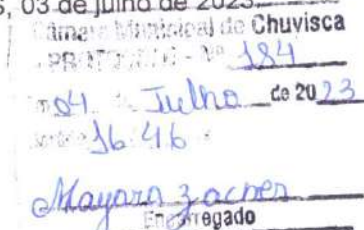 03 de julho de 2023.
Câmara Municipal de Chuvisca
PROTOCOLO - Nº 184
Em 04 de Julho de 2023
16:46
Mayara
Encarregado